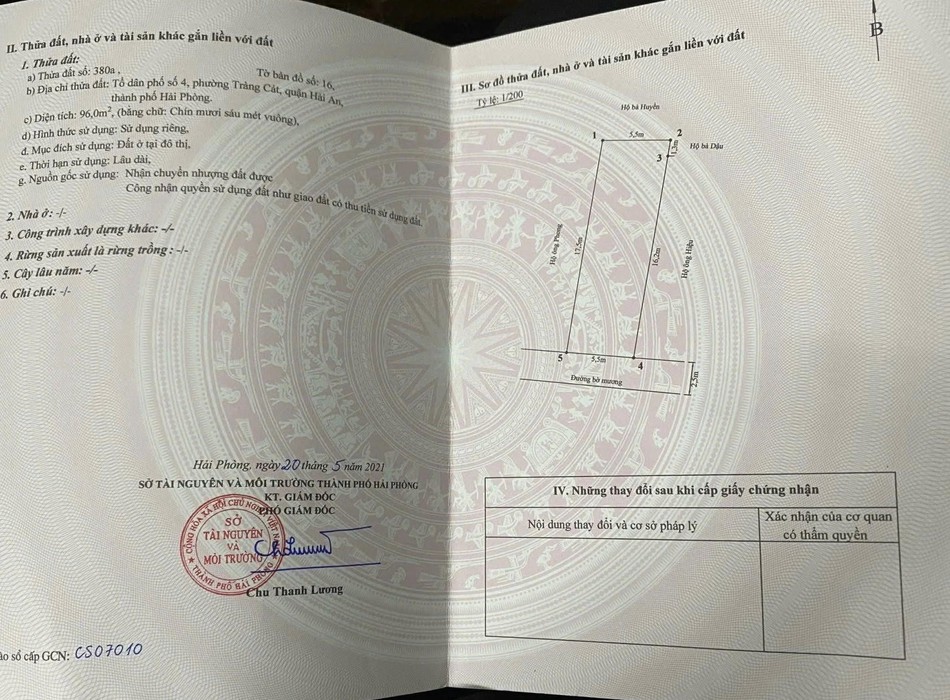 II. Thửa đất, nhà ở và tài sản khác gắn liền với đất
1. Thửa đất:
a) Thửa đất số: 380a, Tờ bản đồ số: 16,
b) Địa chỉ thửa đất: Tổ dân phố số 4, phường Tràng Cát, quận Hải An,
thành phố Hải Phòng.
c) Diện tích: 96,0m², (bằng chữ: Chín mươi sáu mét vuông),
d) Hình thức sử dụng: Sử dụng riêng,
đ. Mục đích sử dụng: Đất ở tại đô thị,
e. Thời hạn sử dụng: Lâu dài,
g. Nguồn gốc sử dụng: Nhận chuyển nhượng đất được
Công nhận quyền sử dụng đất như giao đất có thu tiền sử dụng đất.
2. Nhà ở: -/-
3. Công trình xây dựng khác: -/-
4. Rừng sản xuất là rừng trồng: -/-
5. Cây lâu năm: -/-
6. Ghi chú: -/-
Hải Phòng, ngày 20 tháng 5 năm 2021
SỞ TÀI NGUYÊN VÀ MÔI TRƯỜNG THÀNH PHỐ HẢI PHÒNG
KT. GIÁM ĐỐC
PHÓ GIÁM ĐỐC
CỘNG HÒA XÃ HỘI CHỦ NGHĨA VIỆT NAM
SỞ
TÀI NGUYÊN
VÀ
MÔI TRƯỜNG
THÀNH PHỐ HẢI PHÒNG
Chu Thanh Lương
vào sổ cấp GCN: CS07010
B
III. Sơ đồ thửa đất, nhà ở và tài sản khác gắn liền với đất
Tỷ lệ: 1/200
Hộ bà Huyền
1 5,5m 2
1,3m
3 Hộ bà Dậu
Hộ ông Phong
17,5m
16,2m
Hộ ông Hiệu
5 5,5m 4
Đường bờ mương
2,5m
IV. Những thay đổi sau khi cấp giấy chứng nhận
Nội dung thay đổi và cơ sở pháp lý
Xác nhận của cơ quan
có thẩm quyền